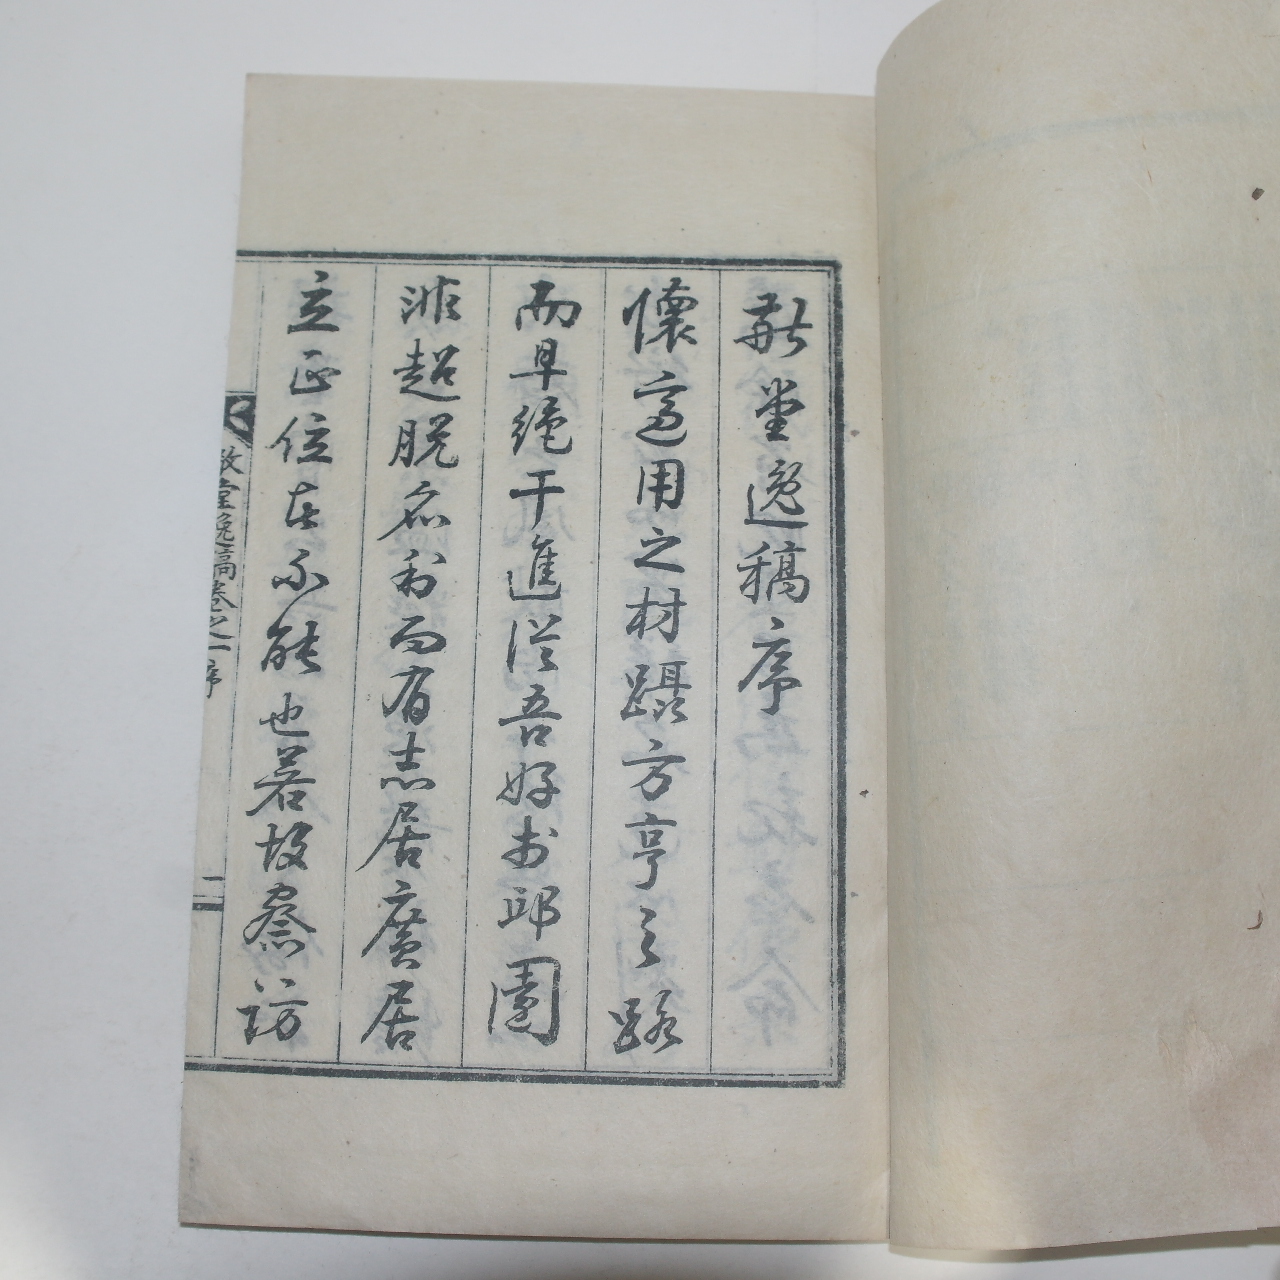 敬堂逸稿序
懷適用之材躡方亨之路
而早絶干進從吾好於邱園
非超脫名利而有志居廣居
立正位者不能也若故察訪
敬堂逸稿卷之一 序 一